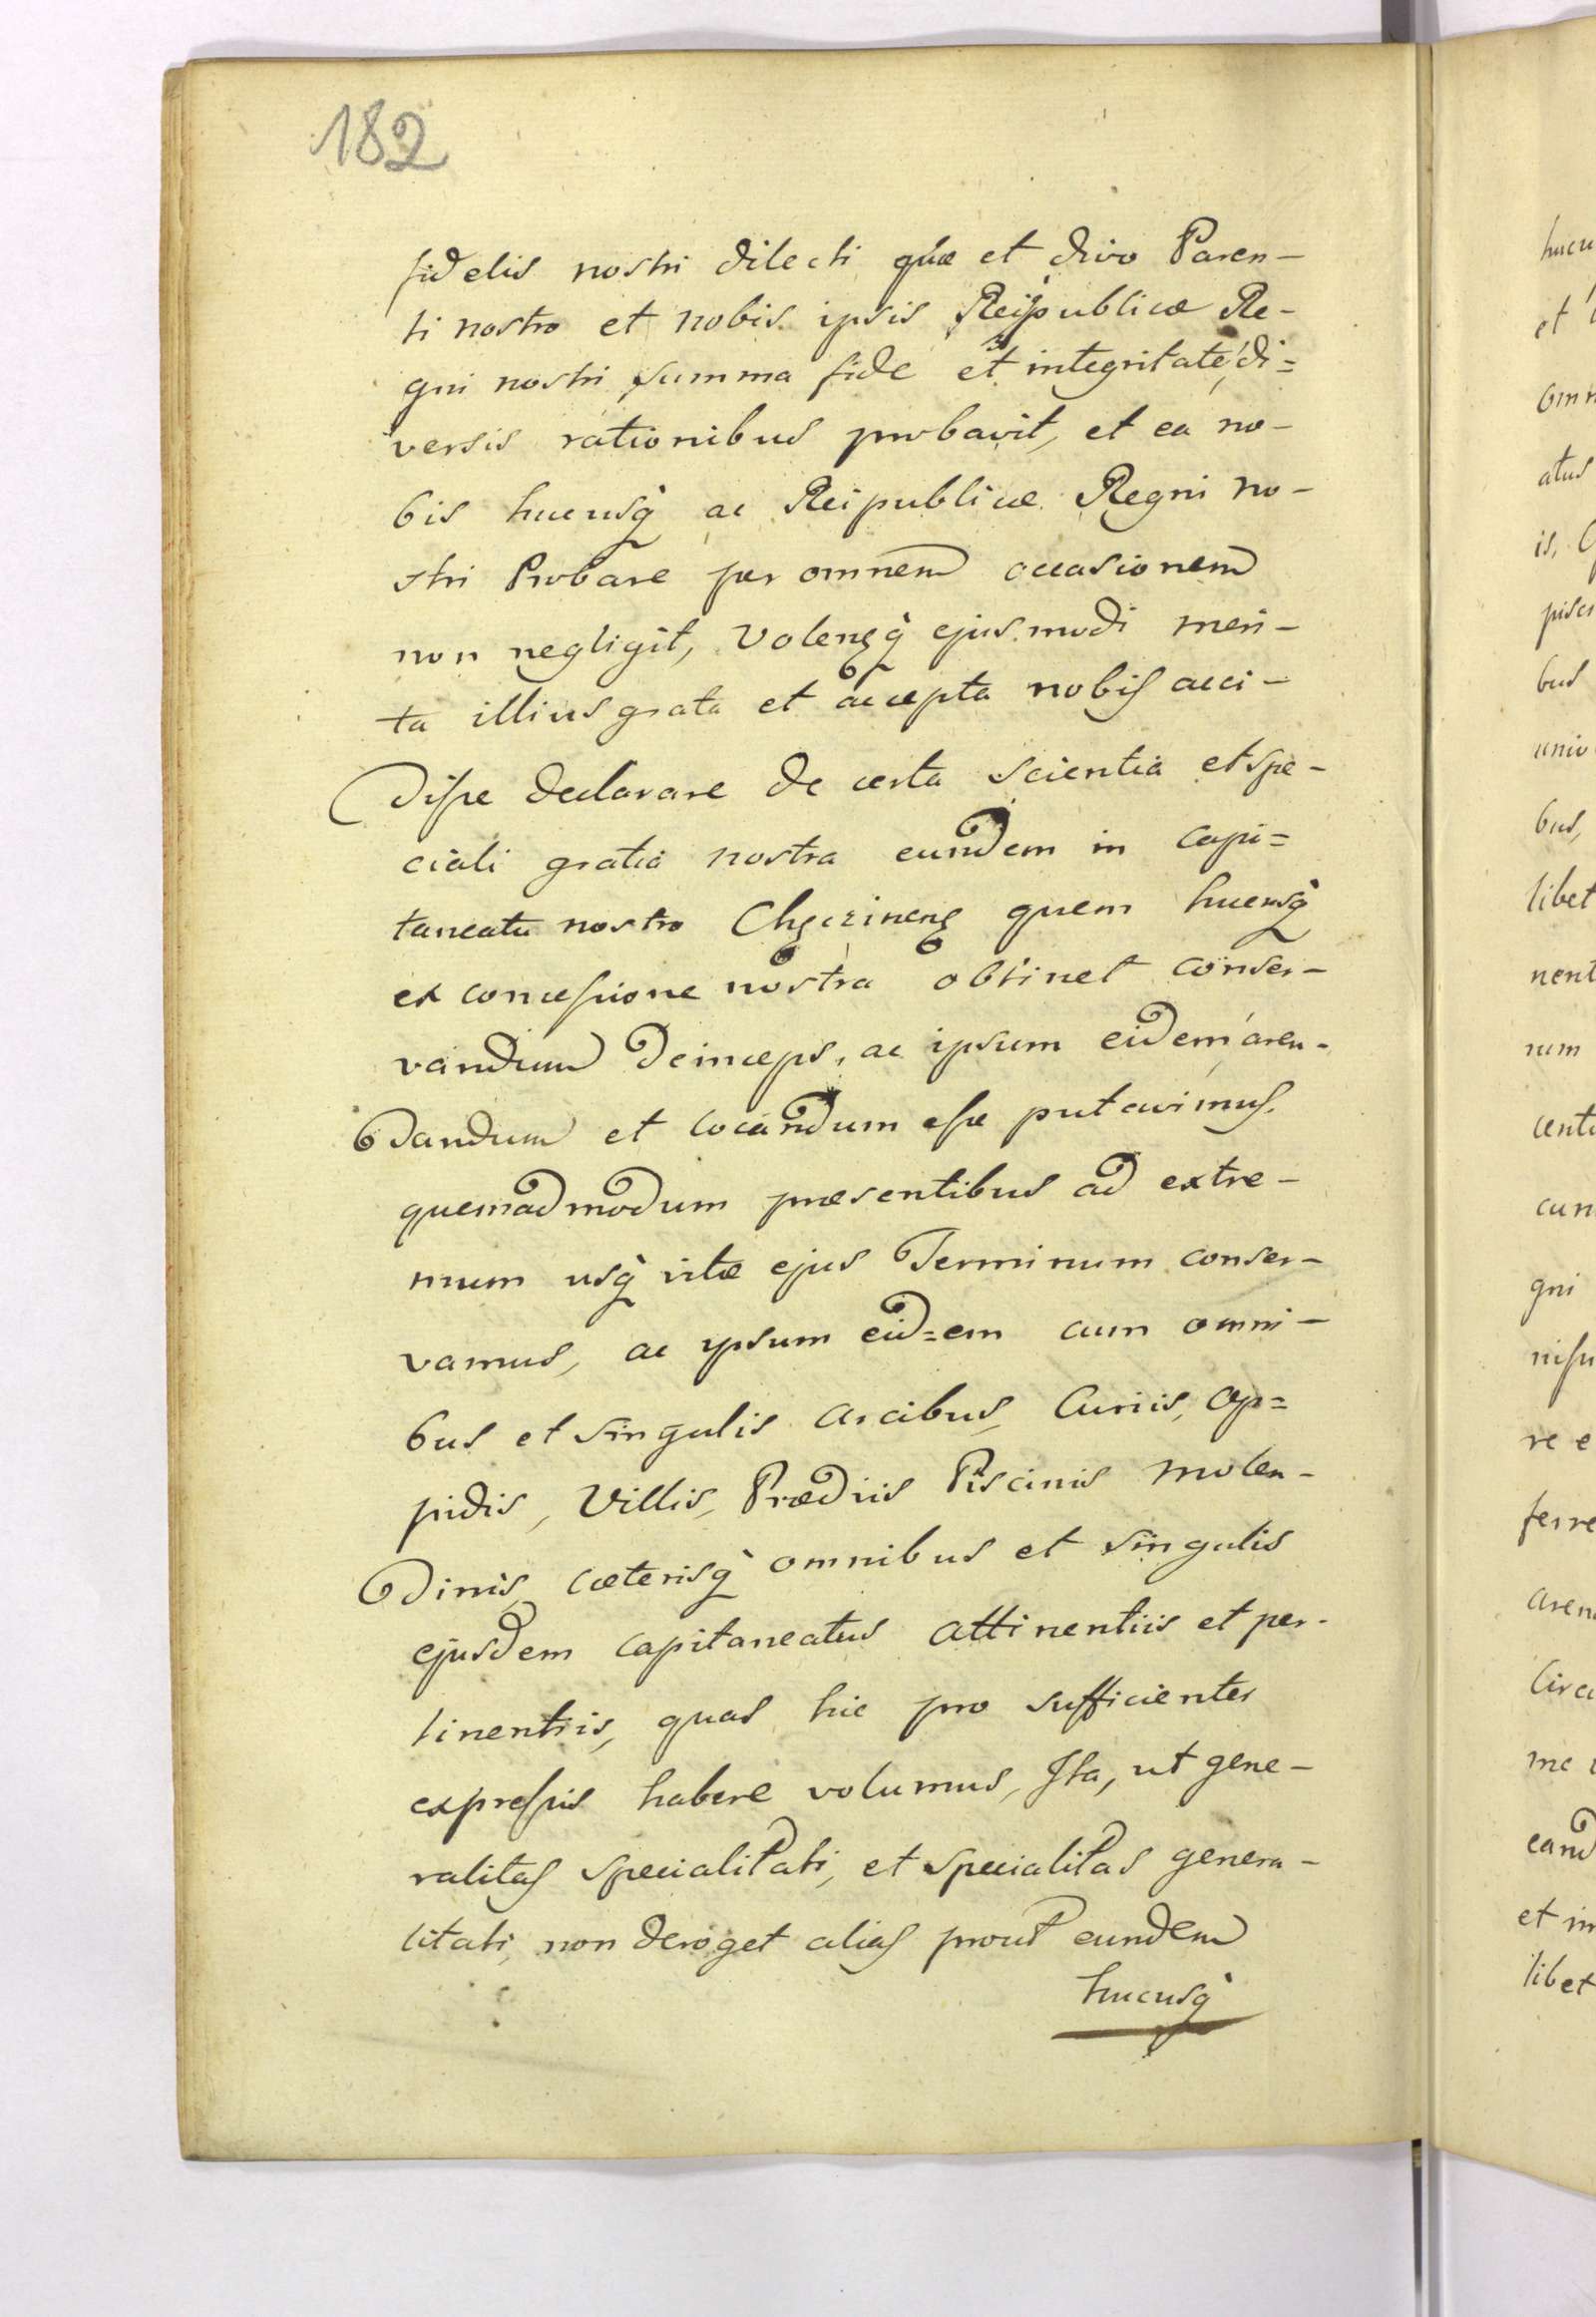 182
fidelis nostri dilecti quæ et divo Paren-
ti nostro et nobis ipsis Reipublicæ Re-
gni nostri summa fide et integritate di=
versis rationibus probavit, et ea no-
bis hucusq̀ ac Reipublicæ Regni no-
stri Probare per omnem occasionem
non negligit, Volensq̀ ejusmodi meri-
ta illius grata et accepta nobis acci-
disse declarare de certa scientia et spe-
ciali gratia nostra eundem in capi=
taneatu nostro quem hucusq̀
ex concessione nostra obtinet conser-
vandum deinceps, ac ipsum eidem aren-
dandum et locandum esse putavimus.
quemadmodum præsentibus ad extre-
mum usq̀ vitæ ejus Terminum conser-
vamus, ac ypsum eid=em cum omni-
bus et singulis arcibus, Curiis, op=
pidis, Villis, Prædiis Piscinis molen-
dinis, cæterisq̀ omnibus et singulis
ejusdem capitaneatus attinentiis et per-
tinentiis, quas hic pro sufficienter
expressis habere volumus, Ita, ut gene-
ralitas specialitati, et specialitas genera-
litati, non deroget alias prout eundem
hucusq̀
hucu
et
omn
atus
is,
pisci
bus
univ
bus,
libet
nent
num
cento
cun
gni
nissu
re e
ferre
aren
Circa
me
eand
et im
libet